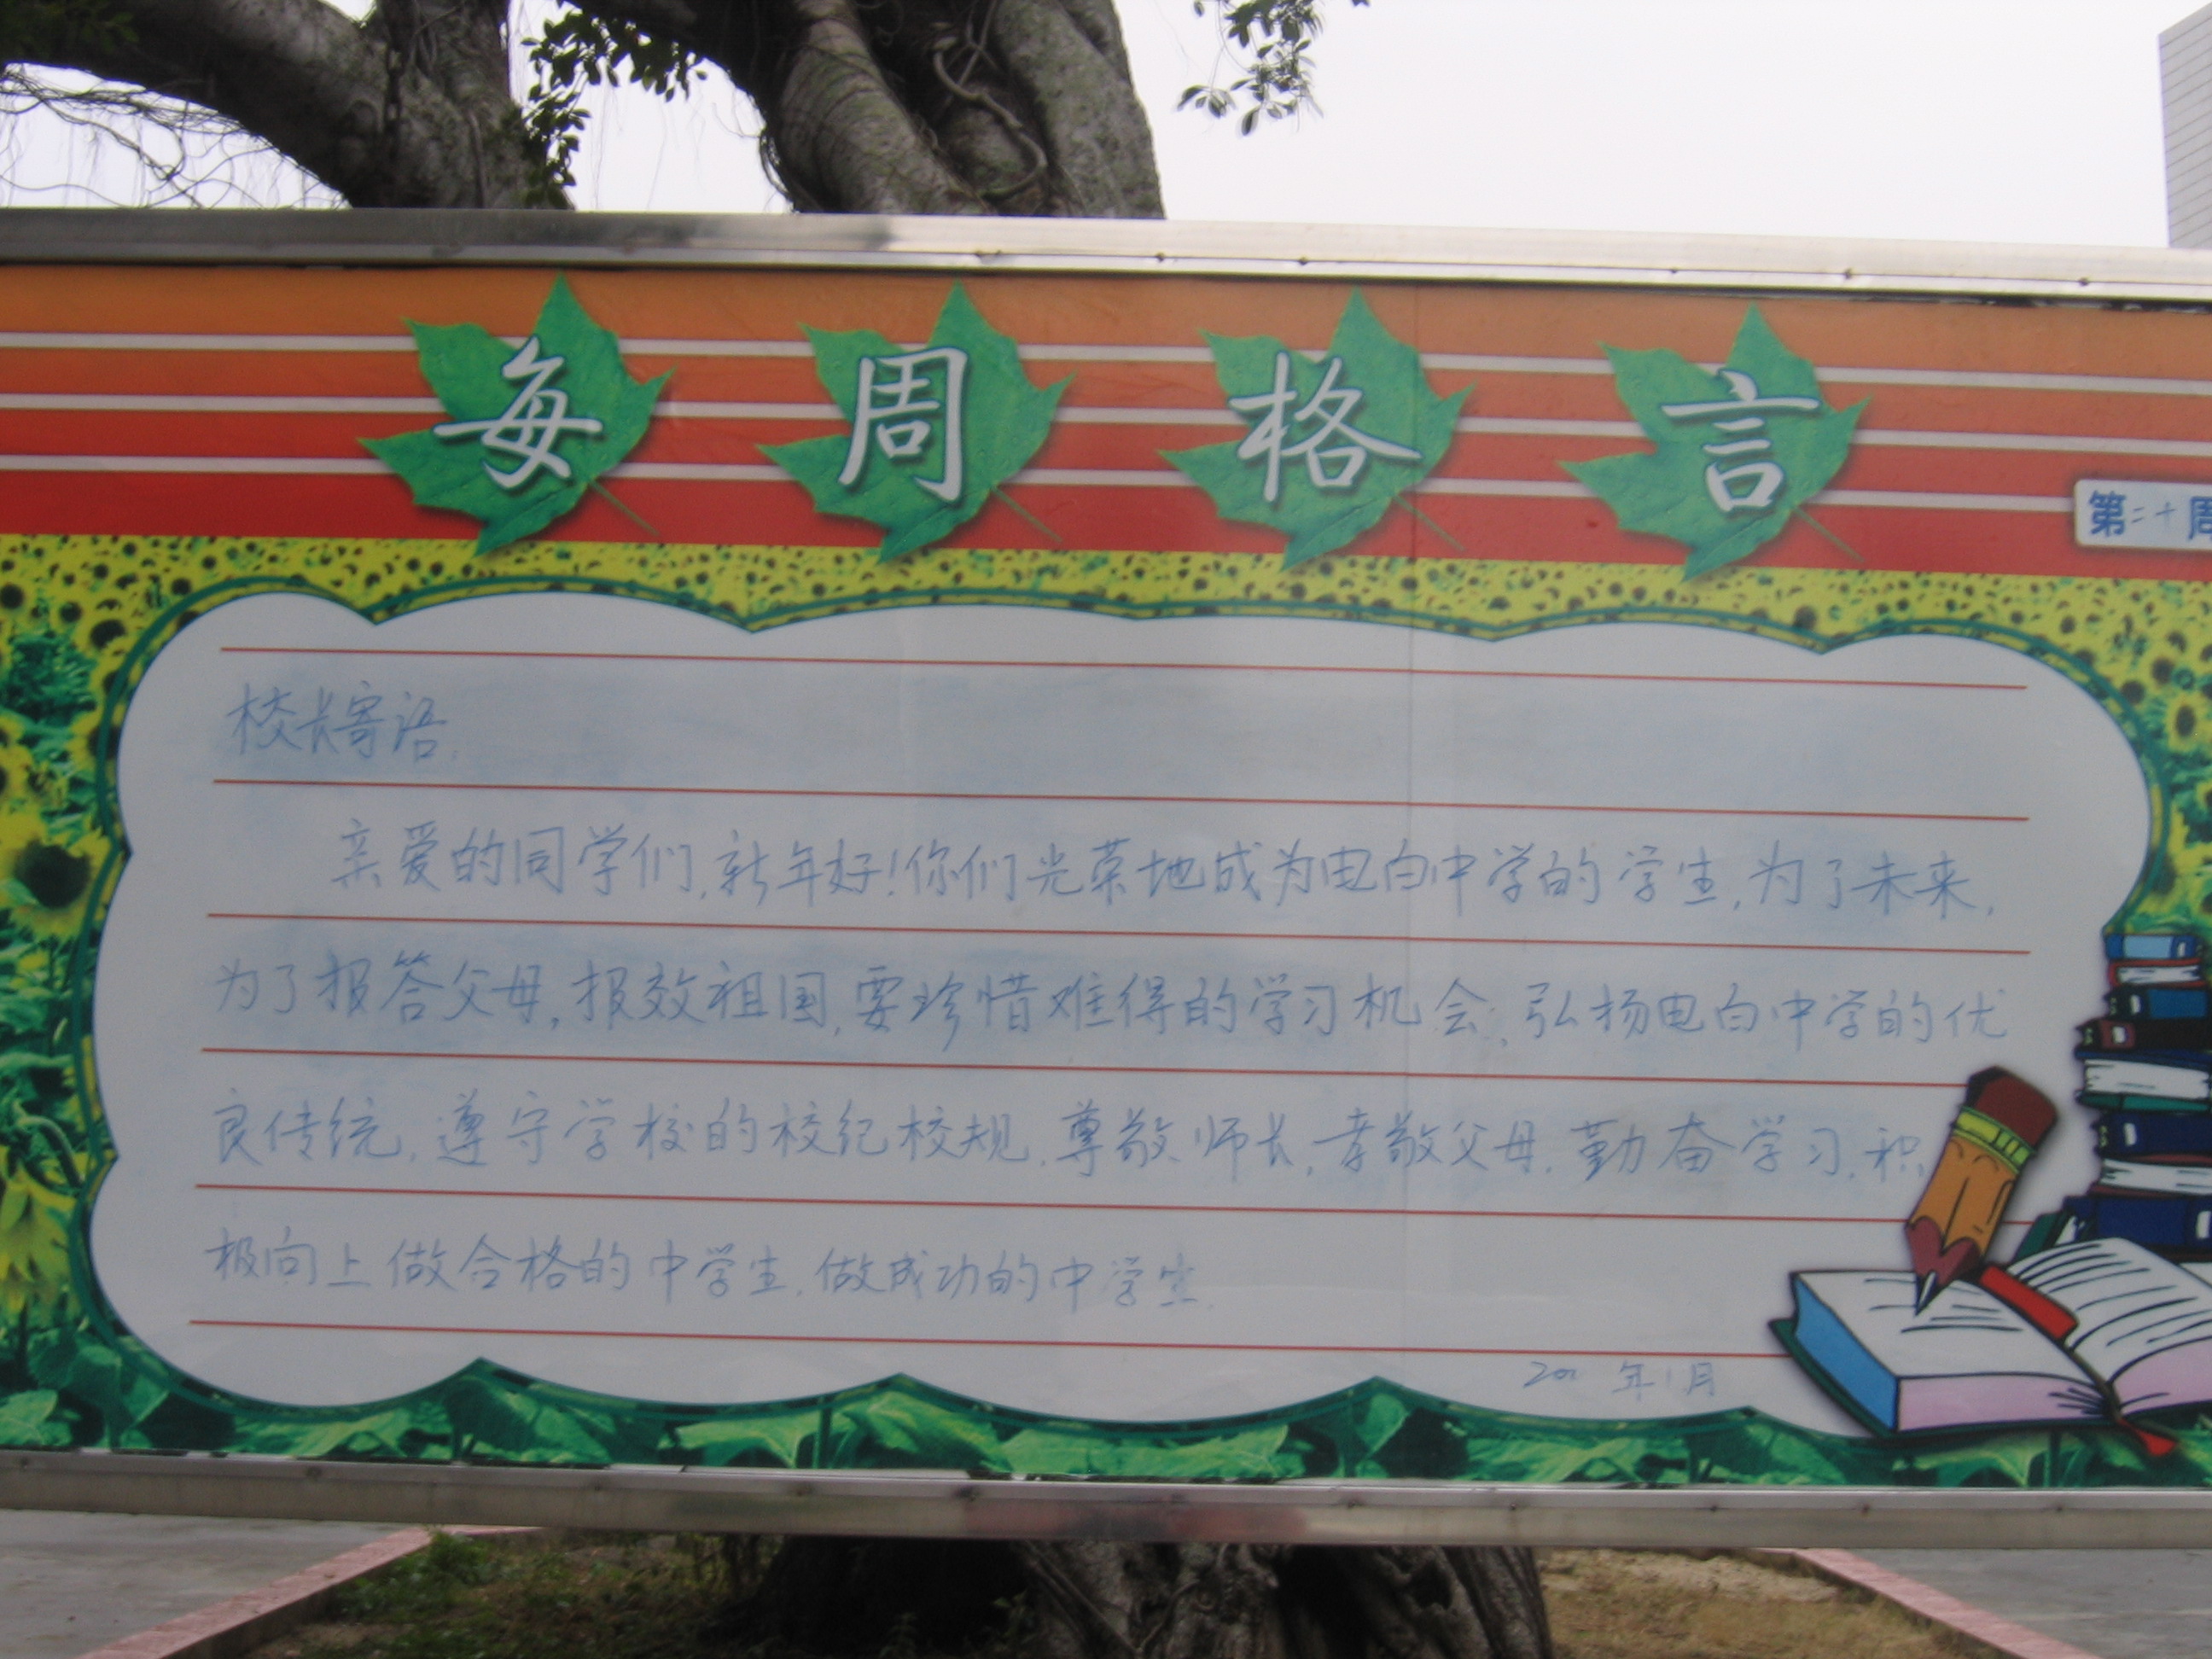 每周格言
第二十周
校长寄语
亲爱的同学们,新年好!你们光荣地成为电白中学的学生,为了未来,
为了报答父母,报效祖国,要珍惜难得的学习机会,弘扬电白中学的优
良传统,遵守学校的校纪校规,尊敬师长,孝敬父母,勤奋学习,积
极向上做合格的中学生,做成功的中学生.
年1月